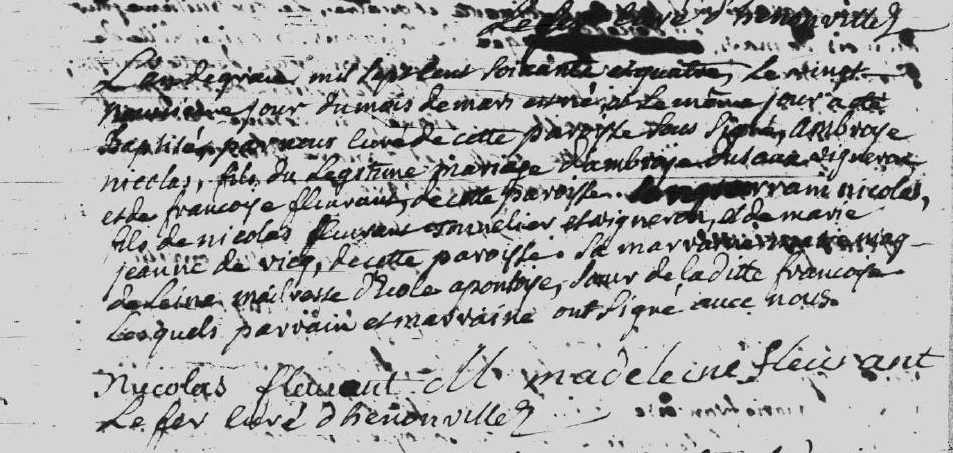 Le fer Curé d'henonville
L'an de grace mil sept cent soixante et quatre, Le vingt
neuvieme jour du mois de mars est né et Le même jour a été
Baptisé par nous curé de cette paroisse sous signé, Ambroise
nicolas, fils du Legitime mariage d'ambroise vigneron
et de francoise fleurant, de cette paroisse. parrain nicolas,
fils de nicolas fleurant tonnelier et vigneron, et de marie
jeanne de vicq, de cette paroisse. Sa marraine marie mag-
deleine maitresse d'Ecole a pontoise, sœur de la ditte francoise
Lesquels parrain et marraine ont signé avec nous.
Nicolas fleurant M madeleine fleurant
Le fer Curé d'henonville